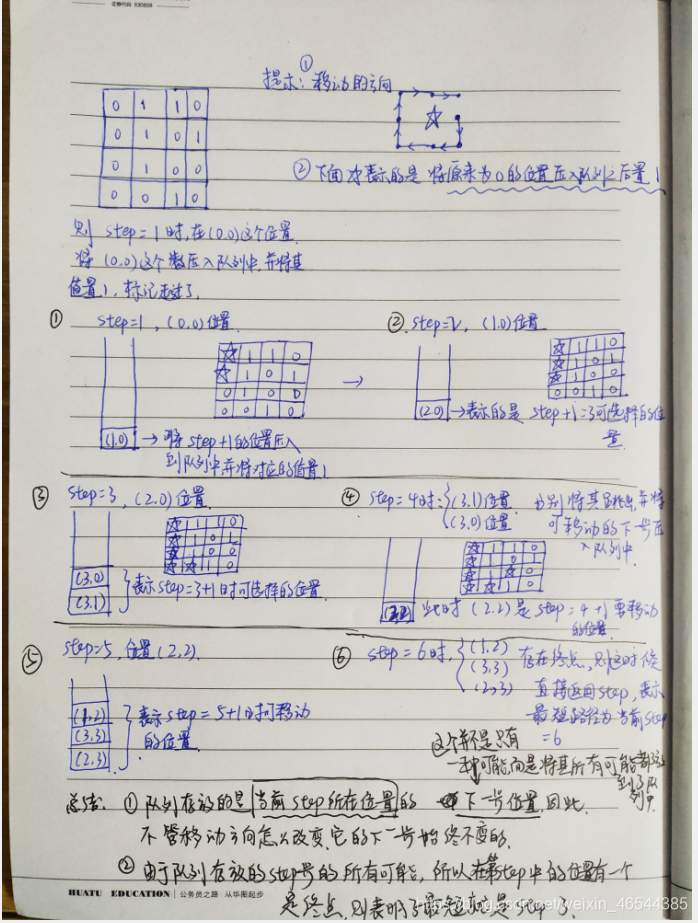 ①
提示: 移动的方向
0 1 1 0
0 1 0 1
0 1 0 0
0 0 1 0
② 下面☆表示的是 将原来为0的位置压入队列之后置1
则 step=1时,在(0.0)这个位置.
将 (0.0)这个数压入队列中,并将其
值置1, 标记走过了,
① step=1, (0.0)位置.
☆ 1 1 0
☆ 1 0 1
0 1 0 0
0 0 1 0
(1.0) → 将step+1的位置压入
到队列中并将对应的值置1
→
② step=2, (1.0)位置
☆ 1 1 0
☆ 1 0 1
☆ 1 0 0
0 0 1 0
(2.0) → 表示的是 step+1=3可选择的位
置
③ step=3, (2.0)位置.
☆ 1 1 0
☆ 1 0 1
☆ 1 0 0
☆ ☆ 1 0
(3.0)
(3.1)
表示step=3+1时可选择的位置.
④ step=4时: (3.1)位置. 分别将其 并将
(3.0)位置 可移动的下一步压
入队列中.
☆ 1 1 0
☆ 1 0 1
☆ 1 ☆ 0
☆ ☆ 1 0
(2.2) 此时 (2.2)是step=4+1要移动
的位置.
⑤ step=5, 位置(2,2).
(1,2)
(3.3)
(2,3)
表示step=5+1时可移动
的位置.
⑥ step=6时, (1,2)
(3.3)
(2,3)
存在终点, 则这时候
直接返回step, 表示
最短路径为当前step
=6
这个并不是只有
一种可能而是将其所有可能都
到了队
列中.
总结: ① 队列存放的是 当前step所在位置 的 下一步位置, 因此.
不管移动方向怎么改变,它的下一步始终不变的.
② 由于队列存放的step号的所有可能, 所以在step中的位置有一个
是终点, 则表明了最短 是step
HUATU EDUCATION | 公务员之路 从华图起步
https://blog.csdn.net/weixin_46544385